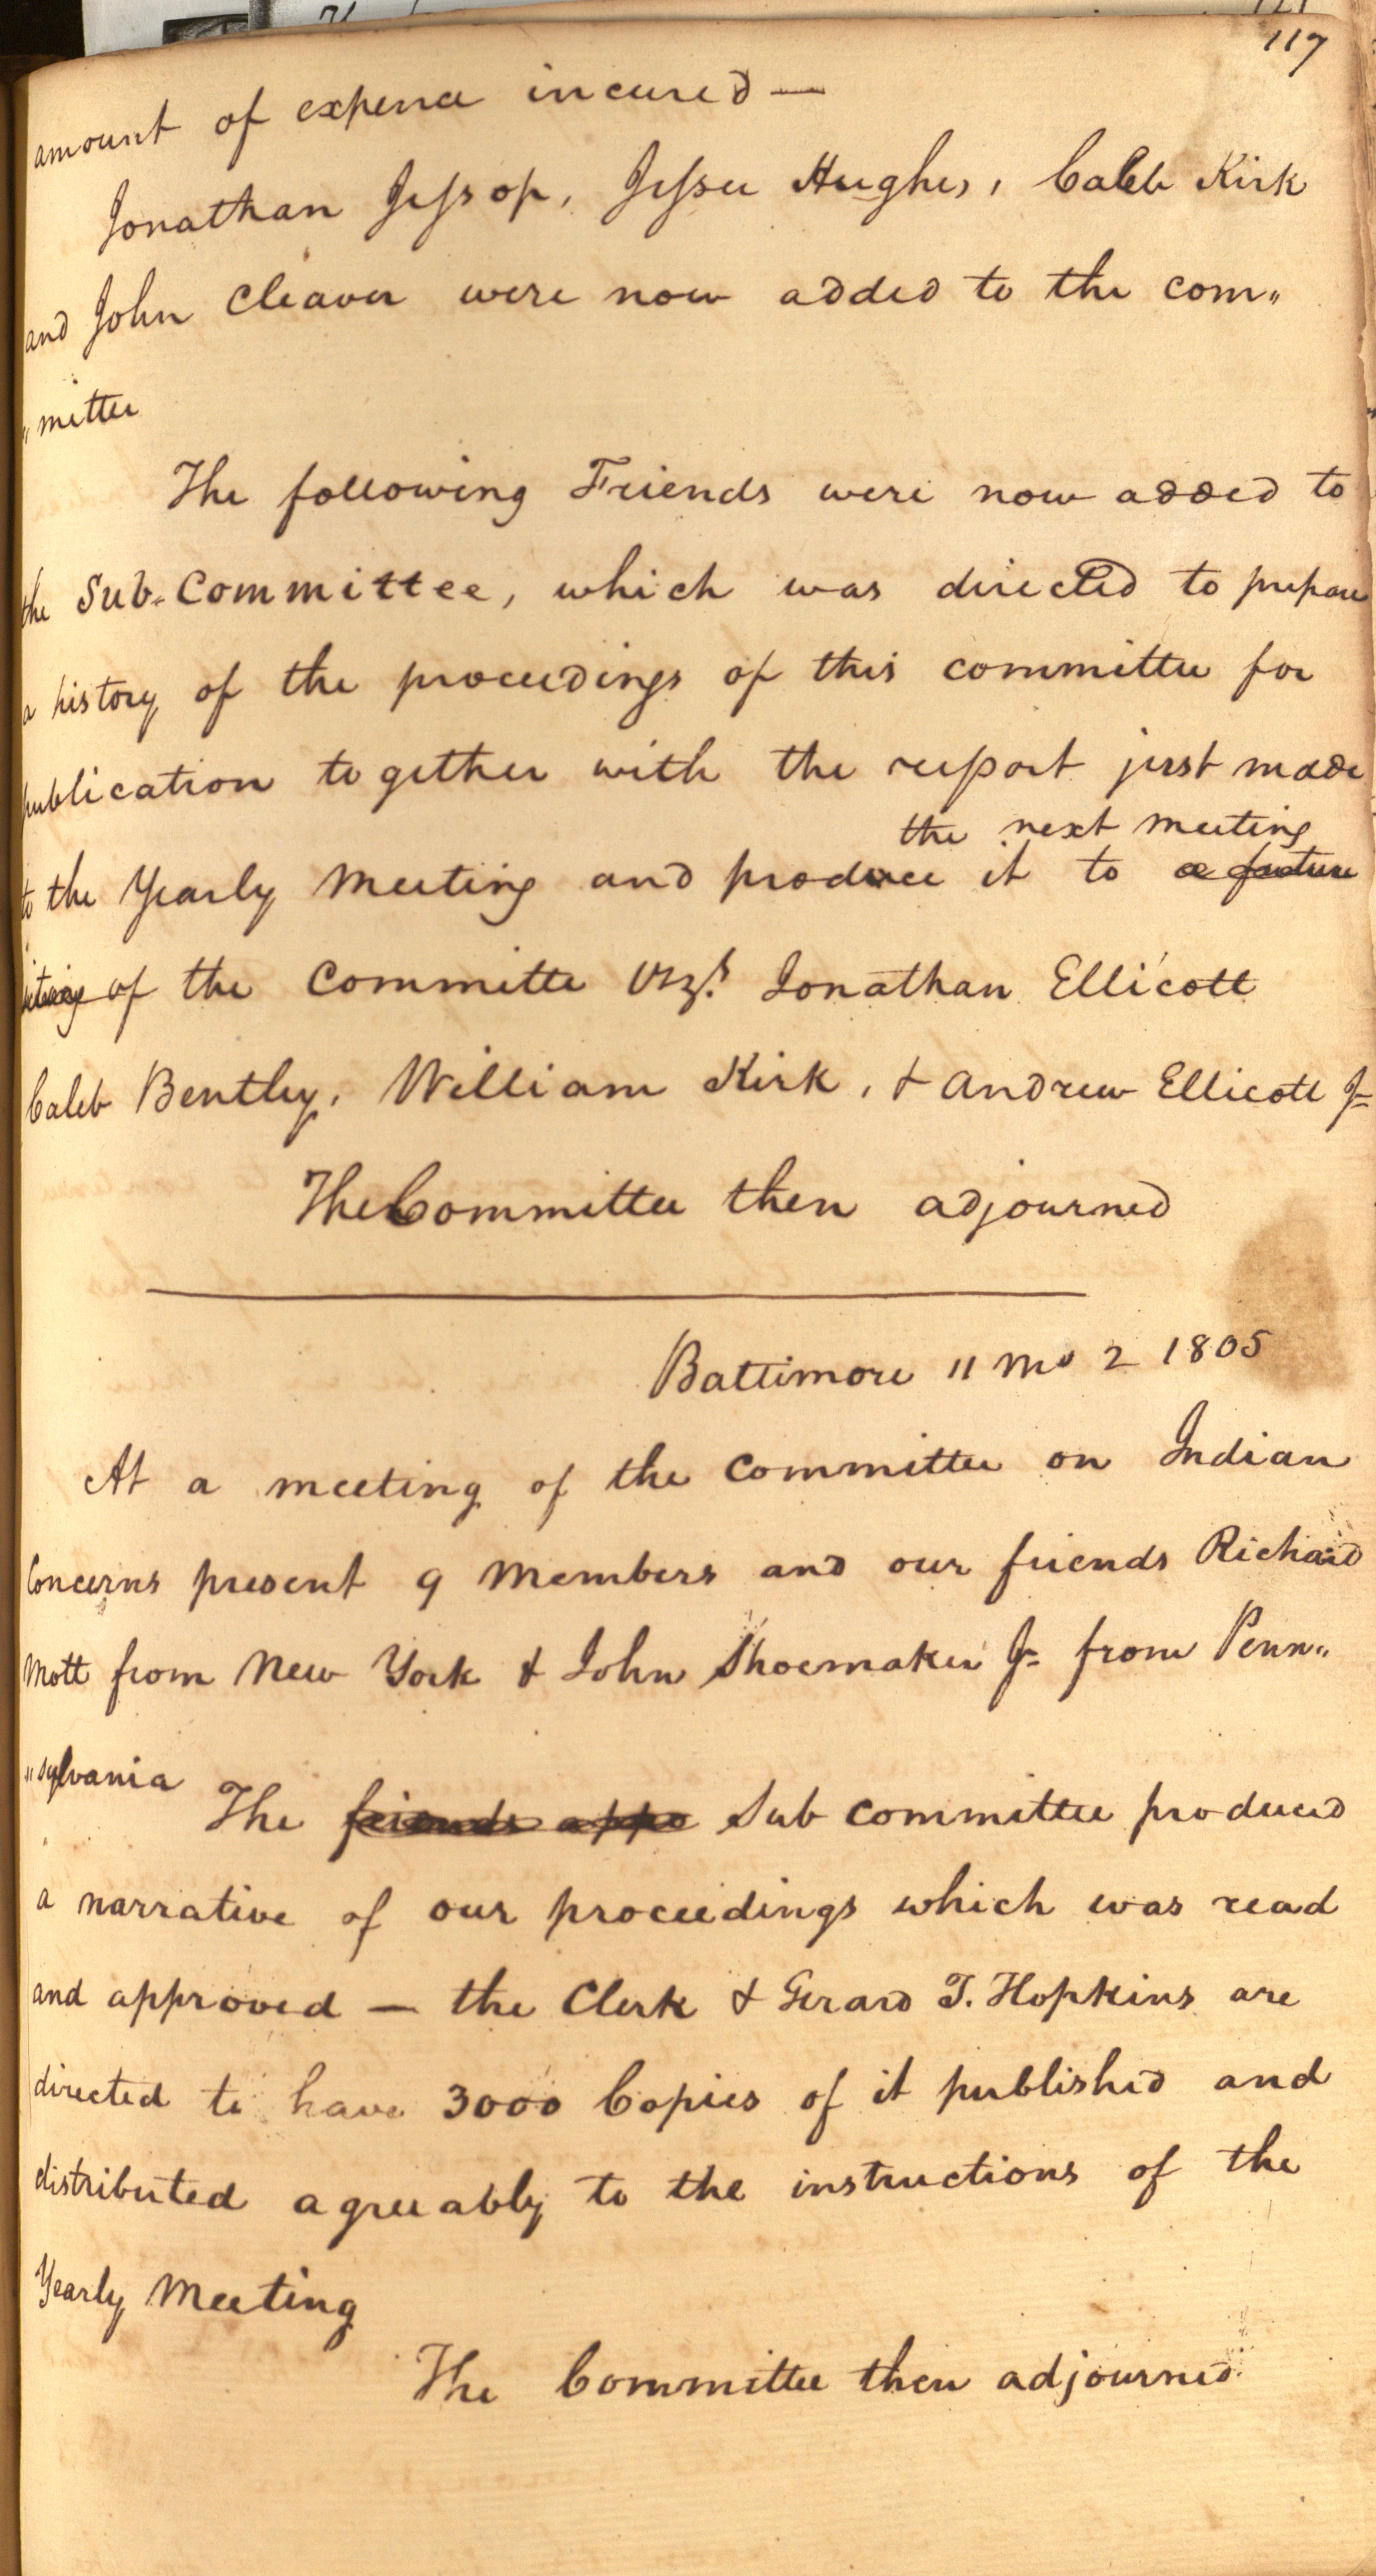 117
amount of expence incured —
Jonathan Jessop, Jesse Hughes, Caleb Kirk
and John Cleaver were now added to the com„
„mittee
The following Friends were now added to
the Sub-Committee, which was directed to prepare
a history of the proceedings of this committee for
publication together with the report just made
the next meeting
to the Yearly Meeting and produce it to a future
of the Committe Vizt Jonathan Ellicott
Caleb Bentley, William Kirk, & Andrew Ellicott Jr
The Committee then adjourned
Baltimore 11 Mo 2 1805
At a meeting of the Committee on Indian
Concerns present 9 Members and our friends Richard
Mott from New York & John Shoemaker Jr from Penn„
„sylvania
The friends appo Sub committee produced
a narrative of our proceedings which was read
and approved — the Clerk & Gerard T. Hopkins are
directed to have 3000 Copies of it published and
distributed agreeably to the instructions of the
Yearly Meeting
The Committee then adjourned.